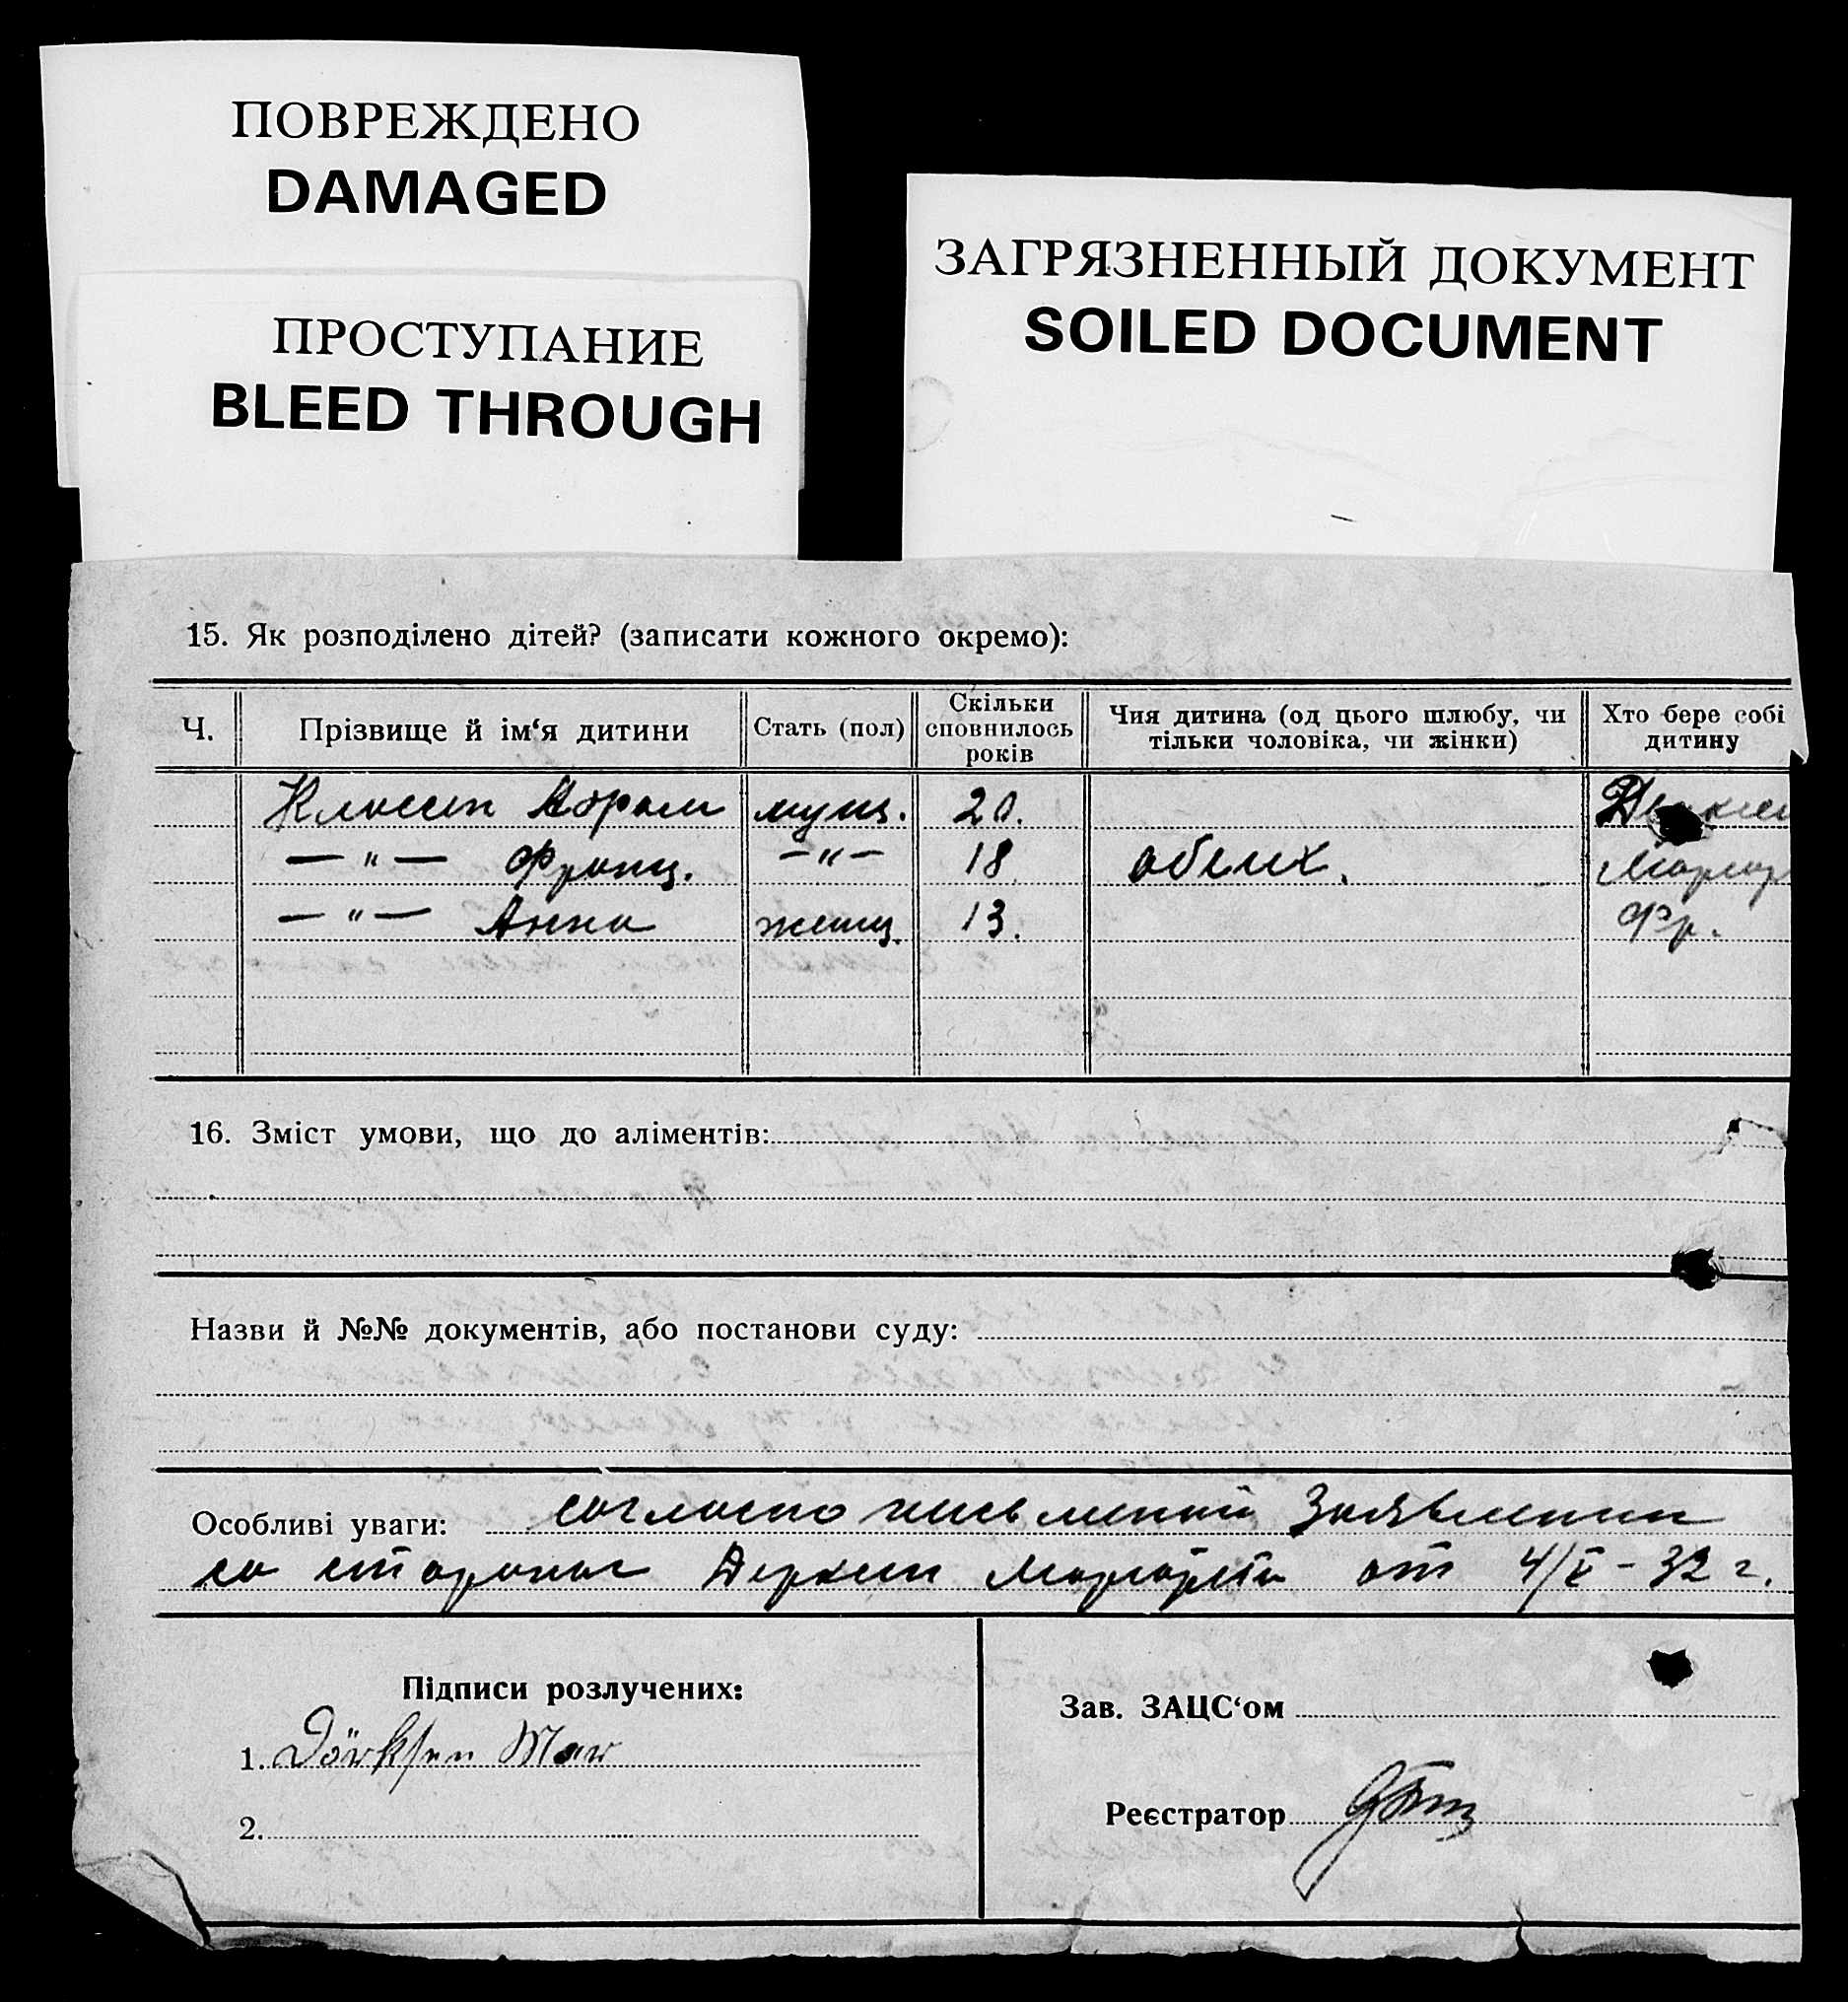 ПОВРЕЖДЕНО
DAMAGED
ПРОСТУПАНИЕ
BLEED THROUGH
ЗАГРЯЗНЕННЫЙ ДОКУМЕНТ
SOILED DOCUMENT
15. Як розподілено дітей? (записати кожного окремо):
Ч. Прізвище й ім‘я дитини Стать (пол) Скільки сповнилось років Чия дитина (од цього шлюбу, чи тільки чоловіка, чи жінки) Хто бере собі дитину
Классен Абрам мущ. 20.
— " — Франц. — " — 18 обеих. Маргар
— " — Анна женщ. 13. Фр.
16. Зміст умови, що до аліментів:
Назви й №№ документів, або постанови суду:
Особливі уваги: согласно письменной Заявлении
со стороны Дерксен Маргарета от 4/X - 32 г.
Підписи розлучених:
1. Dörksen Mar
2.
Зав. ЗАЦС‘ом
Реєстратор